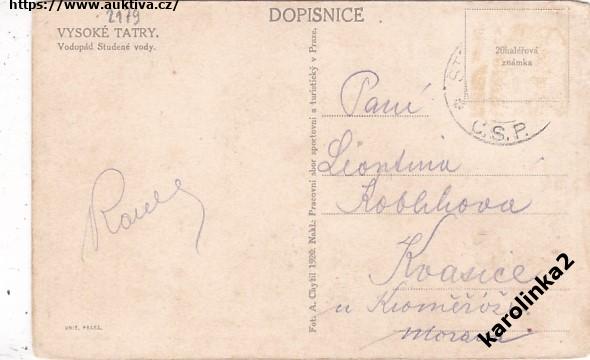 https://www.auktiva.cz/
2179
DOPISNICE
VYSOKÉ TATRY.
Vodopád Studené vody.
20haléřová
známka
ST
Č.S.P.
Paní
Leontina
Koblihova
Kvasice
u Kroměříže
Morava
Fot. A. Chytil 1920. Nakl.: Pracovní sbor sportovní a turistický v Praze.
UNIE, PRAHA.
karolinka2